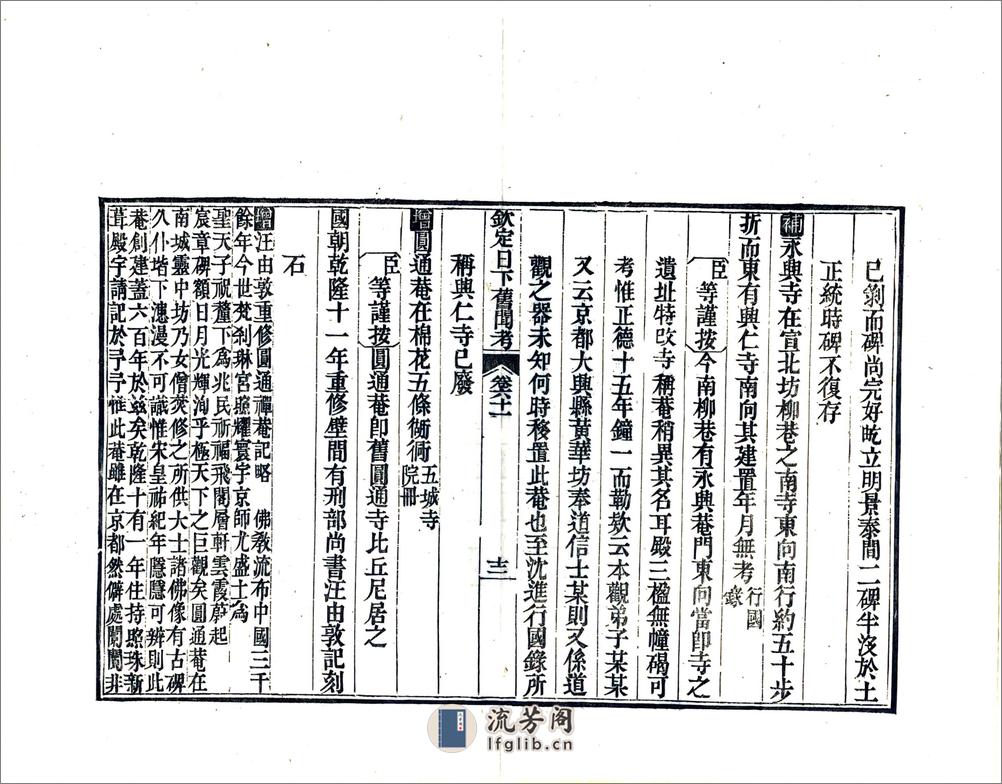 已剝而碑尚完好屹立明景泰間二碑半沒於土
正統時碑不復存
補永興寺在宣北坊柳巷之南寺東向南行約五十步
折而東有興仁寺南向其建置年月無考行國錄
臣等謹按今南柳巷有永興菴門東向當卽寺之
遺址特改寺稱菴稍異其名耳殿三楹無幢碣可
考惟正德十五年鐘一而勒欵云本觀弟子某某
又云京都大興縣黃華坊奉道信士某則又係道
觀之器未知何時移置此菴也至沈進行國錄所
欽定日下舊聞考 卷六十一 十二
稱興仁寺已廢
增圓通菴在棉花五條衚衕五城寺院冊
臣等謹按圓通菴卽舊圓通寺比丘尼居之
國朝乾隆十一年重修壁間有刑部尚書汪由敦記刻
石
增汪由敦重修圓通禪菴記略 佛敎流布中國三千
餘年今世梵刹琳宮照耀寰宇京師尤盛上爲
聖天子祝釐下爲兆民祈福飛閣層軒雲霞蔚起
宸章碑額日月光輝洵乎極天下之巨觀矣圓通菴在
南城靈中坊乃女僧焚修之所供大士諸佛像有古碑
久仆堦下漶漫不可識惟宋皇祐紀年隱隱可辨則此
菴創建蓋六百年於茲矣乾隆十有一年住持照珠新
葺殿宇請記於予予惟此菴雖在京都然僻處闤闠非
流芳阁
lfglib.cn